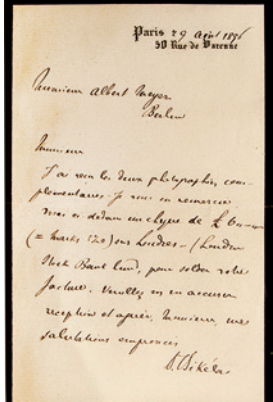 Paris 29 Août 1896
50 Rue de Varenne
Monsieur Albert Meyer
Berlin
Monsieur
J'ai reçu les deux photographies com-
plémentaires. Je vous en remercie
vous en dedans un chèque de £
(= marks 120) sur Londres - (London
Stock Bank Limd, pour solder votre
facture. Veuillez en accuser
réception et agréer, Monsieur, mes
salutations empressées
D. Bikélas